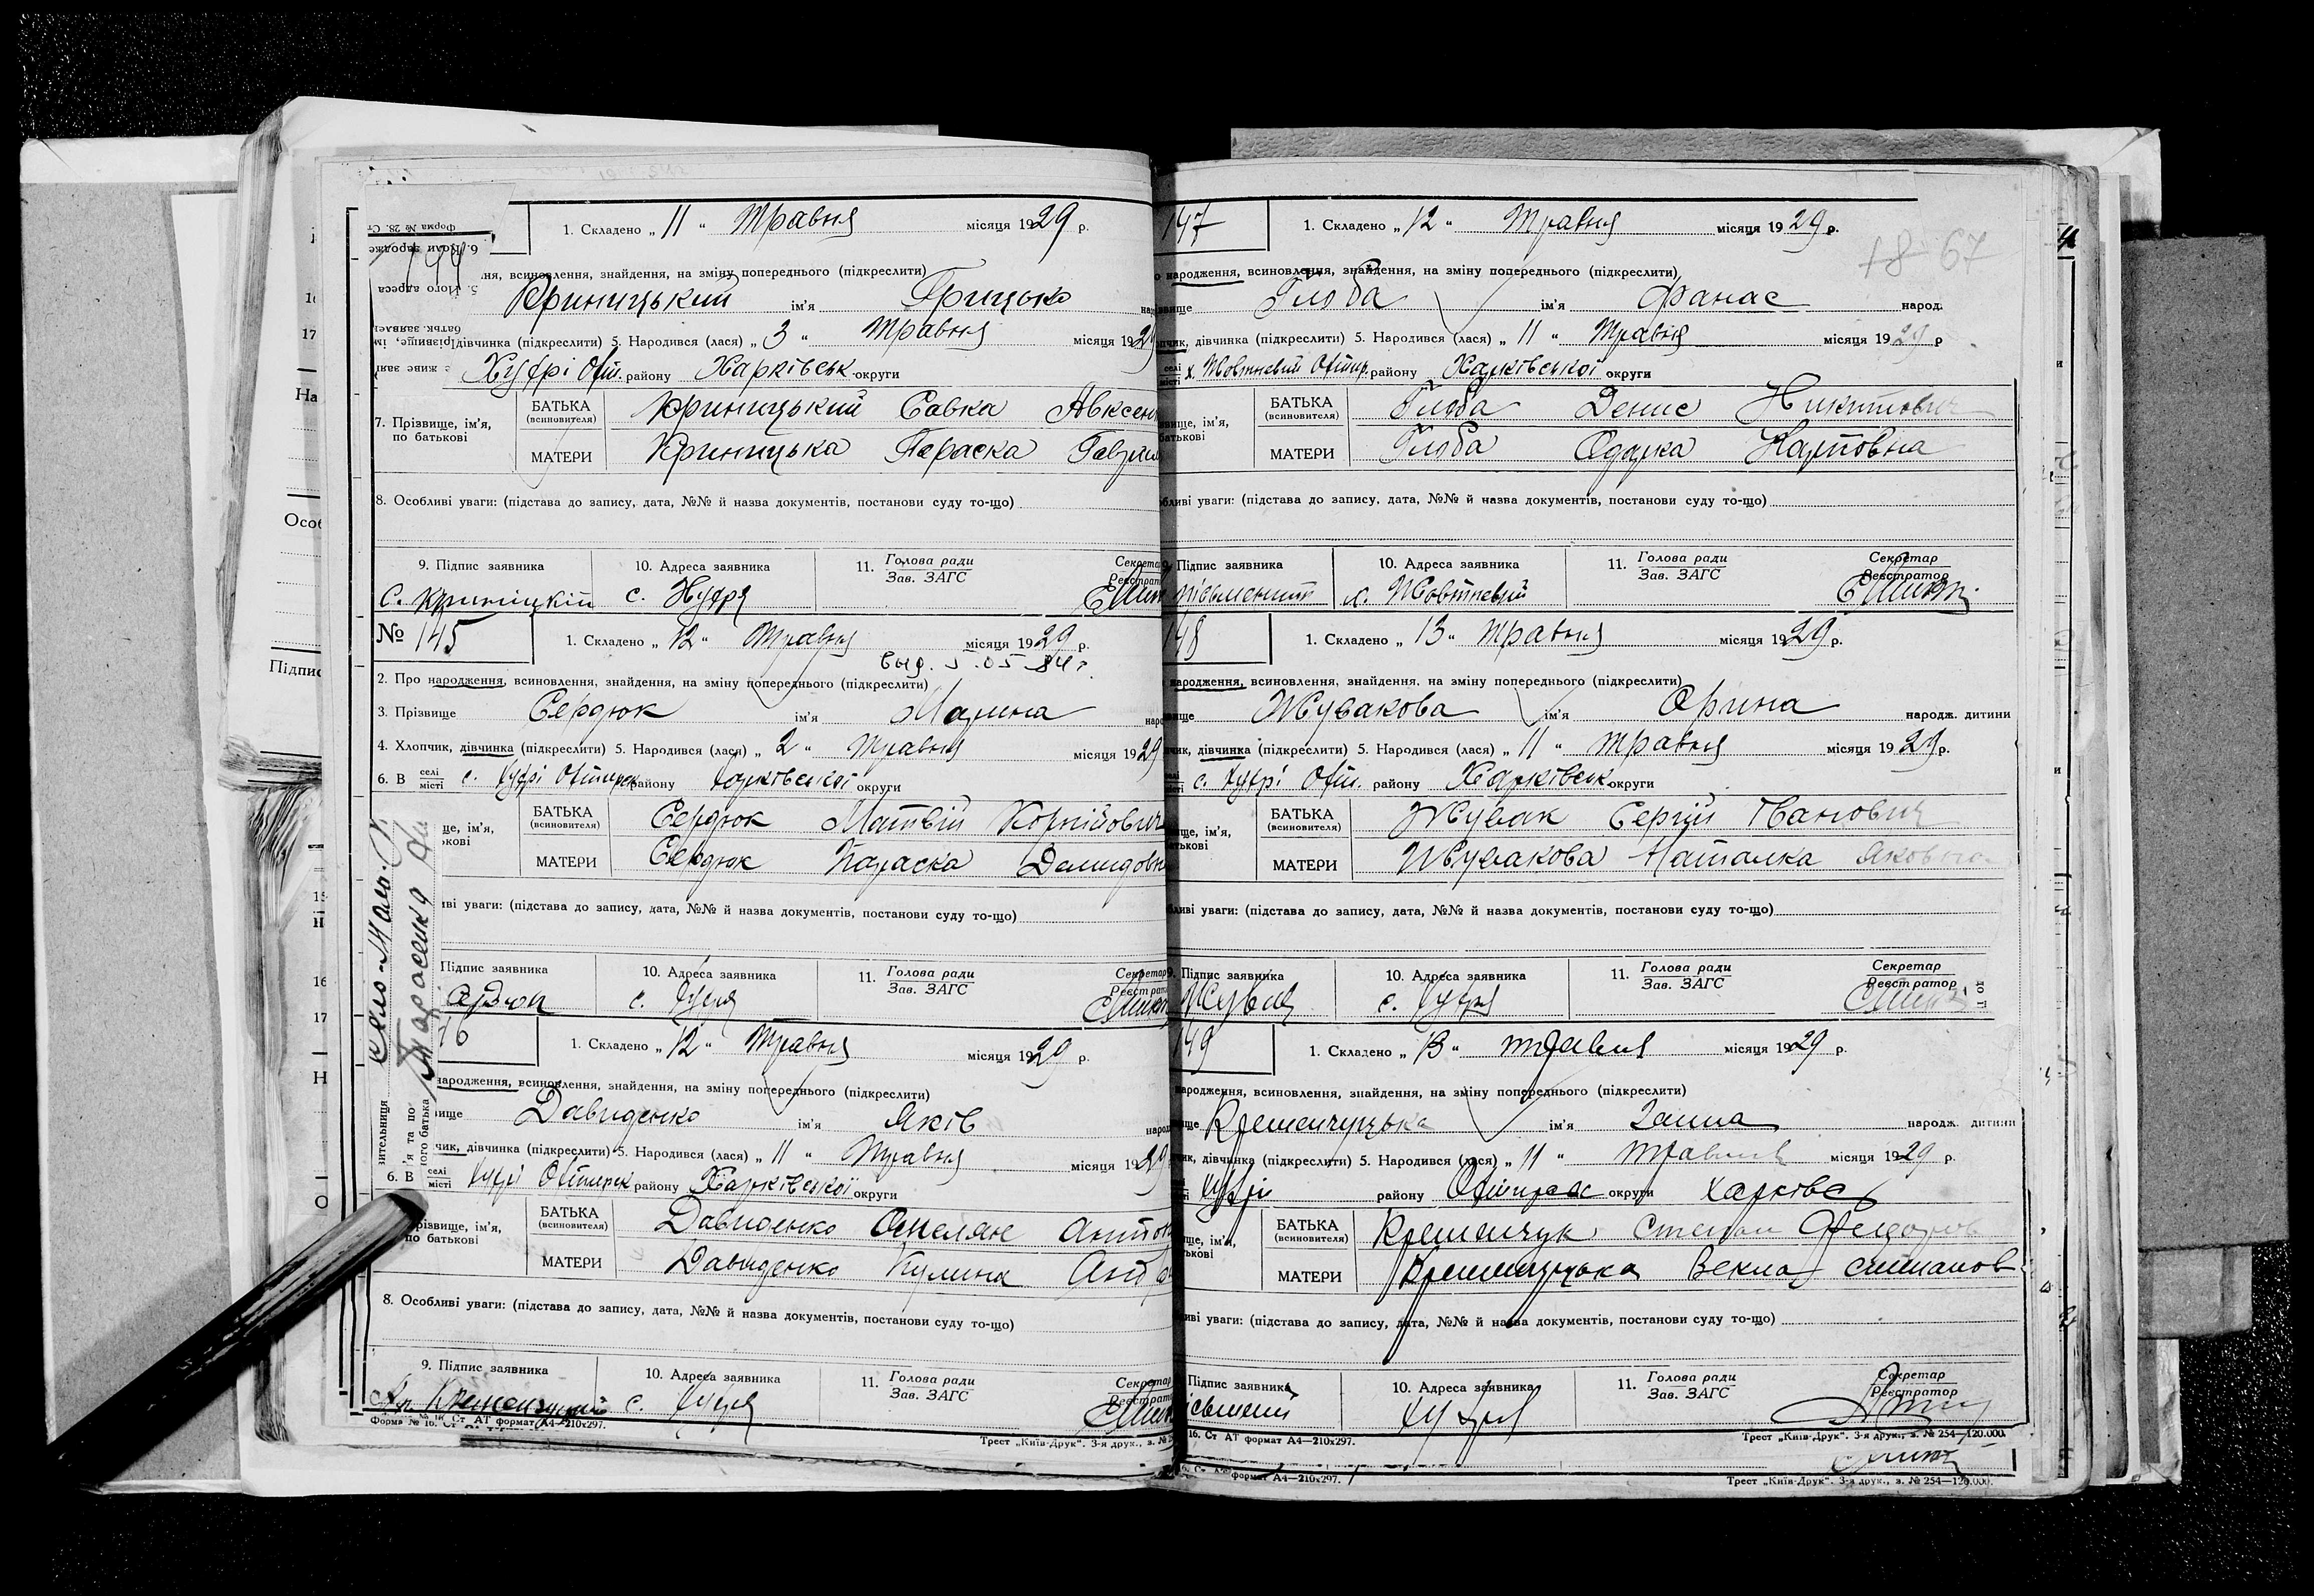 1. Складено „ 11 “ Травня місяця 1929 р.
144
ня, всиновлення, знайдення, на зміну попереднього (підкреслити)
Криницький ім'я Грицько
дівчинка (підкреслити) 5. Народився (лася) „ 3 “ Травня місяця 1929
Хухрі Охт. району Харківськ округи
7. Прізвище, ім'я, по батькові
БАТЬКА (всиновителя) Криницький Савка Авксен
МАТЕРИ Криницька Параска Гаври
8. Особливі уваги: (підстава до запису, дата, №№ й назва документів, постанови суду то-що)
9. Підпис заявника 10. Адреса заявника 11. Голова ради Зав. ЗАГС
С. Криніцкій с. Хухря
№ 145 1. Складено „ 12 “ Травня місяця 1929 р.
выд. 5.05.84 г.
2. Про народження, всиновлення, знайдення, на зміну попереднього (підкреслити)
3. Прізвище Сердюк ім'я Марина
4. Хлопчик, дівчинка (підкреслити) 5. Народився (лася) „ 2 “ Травня місяця 1929
6. В селі місті с. Хухрі Охтирськ району Харківської округи
БАТЬКА (всиновителя) Сердюк Матвій Корнійович
МАТЕРИ Сердюк Параска Демидовн
ві уваги: (підстава до запису, дата, №№ й назва документів, постанови суду то-що)
Підпис заявника 10. Адреса заявника 11. Голова ради Зав. ЗАГС
с. Хухря
1. Складено „ 12 “ Травня місяця 1929 р.
народження, всиновлення, знайдення, на зміну попереднього (підкреслити)
Давиденко ім'я Яків
чик, дівчинка (підкреслити) 5. Народився (лася) „ 11 “ Травня місяця 1929
6. В селі місті Хухрі Охтирськ району Харківської округи
різвище, ім'я, по батькові
БАТЬКА (всиновителя) Давиденко Омелян Антон
МАТЕРИ Давиденко Килина
8. Особливі уваги: (підстава до запису, дата, №№ й назва документів, постанови суду то-що)
9. Підпис заявника 10. Адреса заявника 11. Голова ради Зав. ЗАГС
с. Хухря
Форма № 16. Ст. АТ формат А4—210х297.
Трест „Київ-Друк“. 3-я друк., з. №
147 1. Складено „ 12 “ Травня місяця 1929 р.
18 67
народження, всиновлення, знайдення, на зміну попереднього (підкреслити)
Глоба ім'я Фанас народ.
чик, дівчинка (підкреслити) 5. Народився (лася) „ 11 “ Травня місяця 1929 р
х. Жовтневий Охтир. району Харківської округи
БАТЬКА (всиновителя) Глоба Денис Никитович
МАТЕРИ Глоба Одарка Карповна
ливі уваги: (підстава до запису, дата, №№ й назва документів, постанови суду то-що)
Підпис заявника 10. Адреса заявника 11. Голова ради Зав. ЗАГС Секретар Реєстратор
х. Жовтневий
148 1. Складено „ 13 “ Травня місяця 1929 р.
народження, всиновлення, знайдення, на зміну попереднього (підкреслити)
Жувакова ім'я Орина народж. дитини
чик, дівчинка (підкреслити) 5. Народився (лася) „ 11 “ Травня місяця 1929 р.
с. Хухрі Охт. району Харківськ округи
БАТЬКА (всиновителя) Жувак Сергій Іванович
МАТЕРИ Жувакова Наталка Яковна
ливі уваги: (підстава до запису, дата, №№ й назва документів, постанови суду то-що)
9. Підпис заявника 10. Адреса заявника 11. Голова ради Зав. ЗАГС Секретар Реєстратор
с. Хухря
149 1. Складено „ 13 “ травня місяця 1929 р.
народження, всиновлення, знайдення, на зміну попереднього (підкреслити)
Кременчуцька ім'я Ганна народж. дитини
чик, дівчинка (підкреслити) 5. Народився (лася) „ 11 “ травня місяця 1929 р.
Хухрі району округи
БАТЬКА (всиновителя) Кременчук Степан Федоров
МАТЕРИ Кременчуцька Векла Степанов
ливі уваги: (підстава до запису, дата, №№ й назва документів, постанови суду то-що)
Підпис заявника 10. Адреса заявника 11. Голова ради Зав. ЗАГС Секретар Реєстратор
Хухря
16. Ст АТ формат А4—210х297.
Трест „Київ-Друк“. 3-я друк., з. № 254—120.000.
формат А4—210х297.
Трест „Київ-Друк“. 3-я друк., з. № 254—120.000.